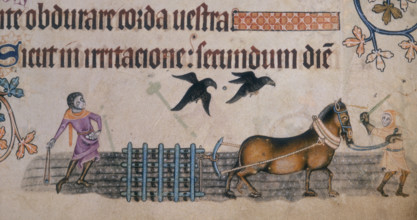 te obdurare corda uestra:
Sicut in irritacione: secundum diē